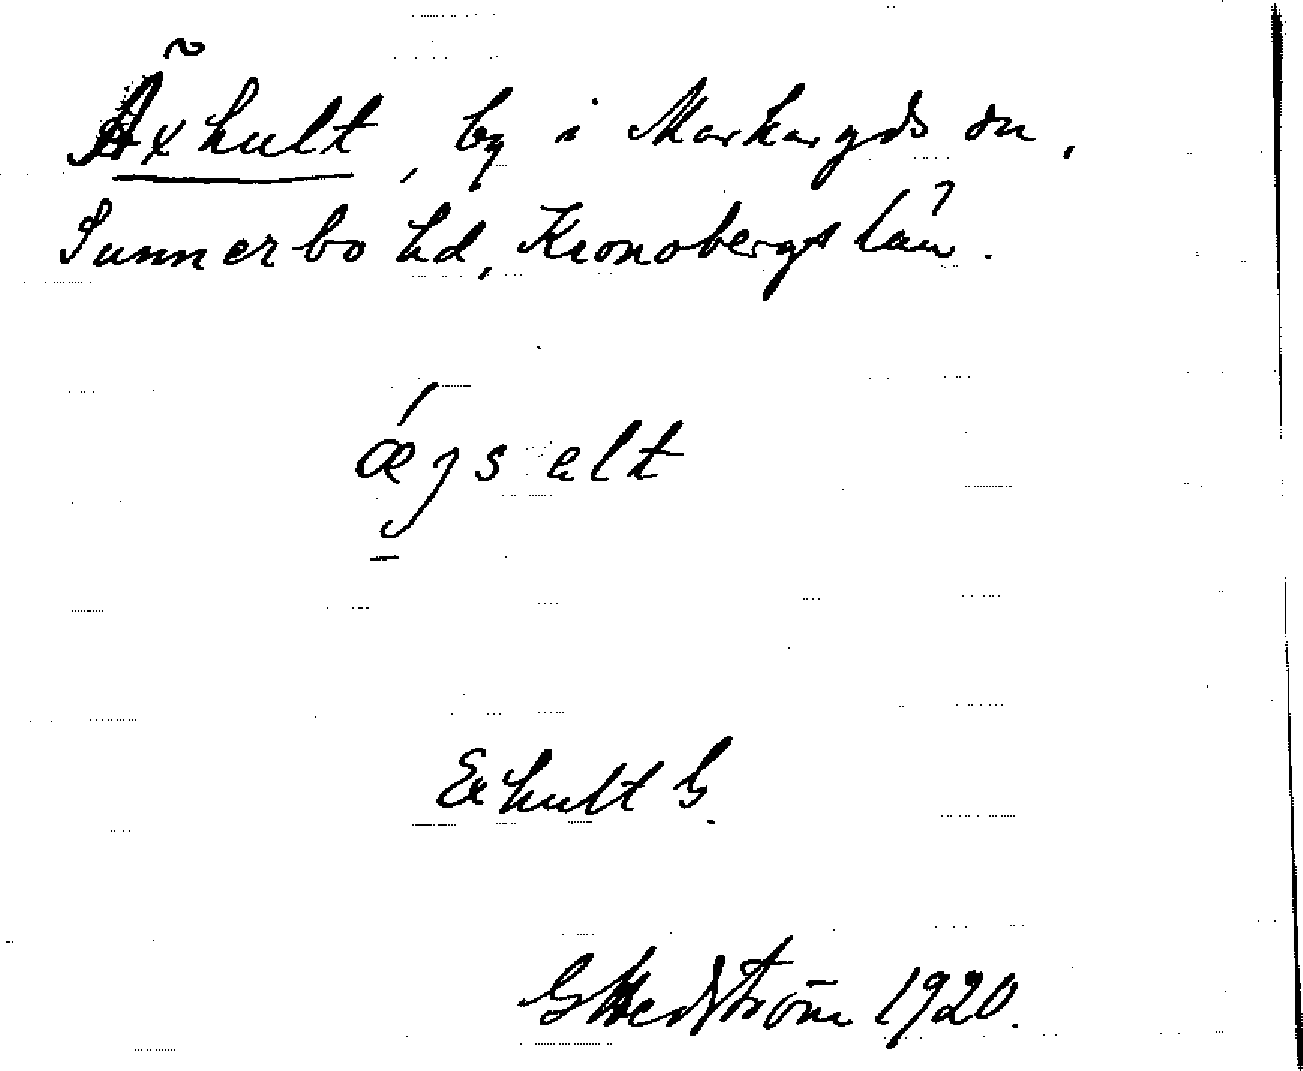 Äxhult, by i Markaryds sn,
Sunnerbo hd, Kronobergs län.
Exhult G.
G Hedström 1920.